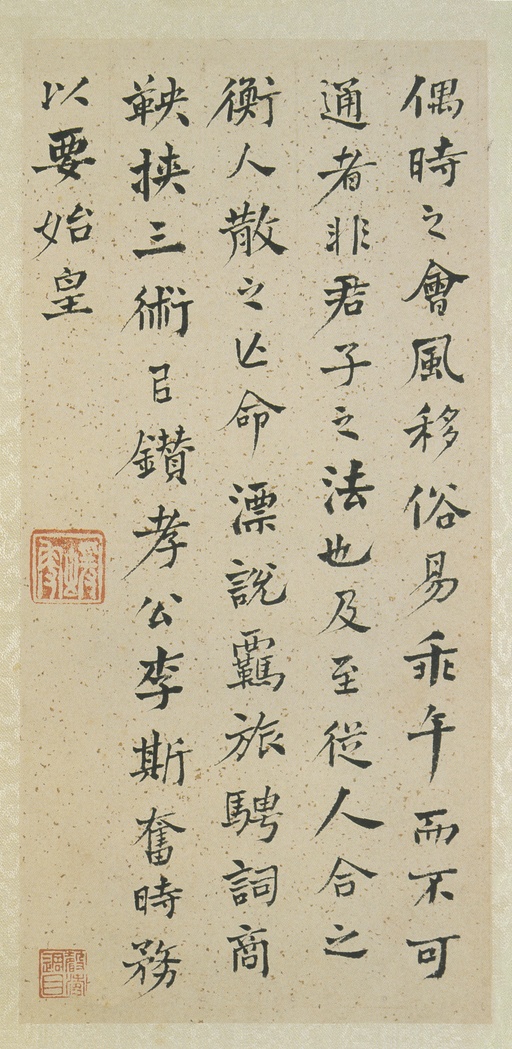 偶時之會風移俗易乖午而不可
通者非君子之法也及至從人合之
衡人散之亾命漂說羈旅騁詞商
鞅挾三術㠯鑽孝公李斯奮時務
以要始皇